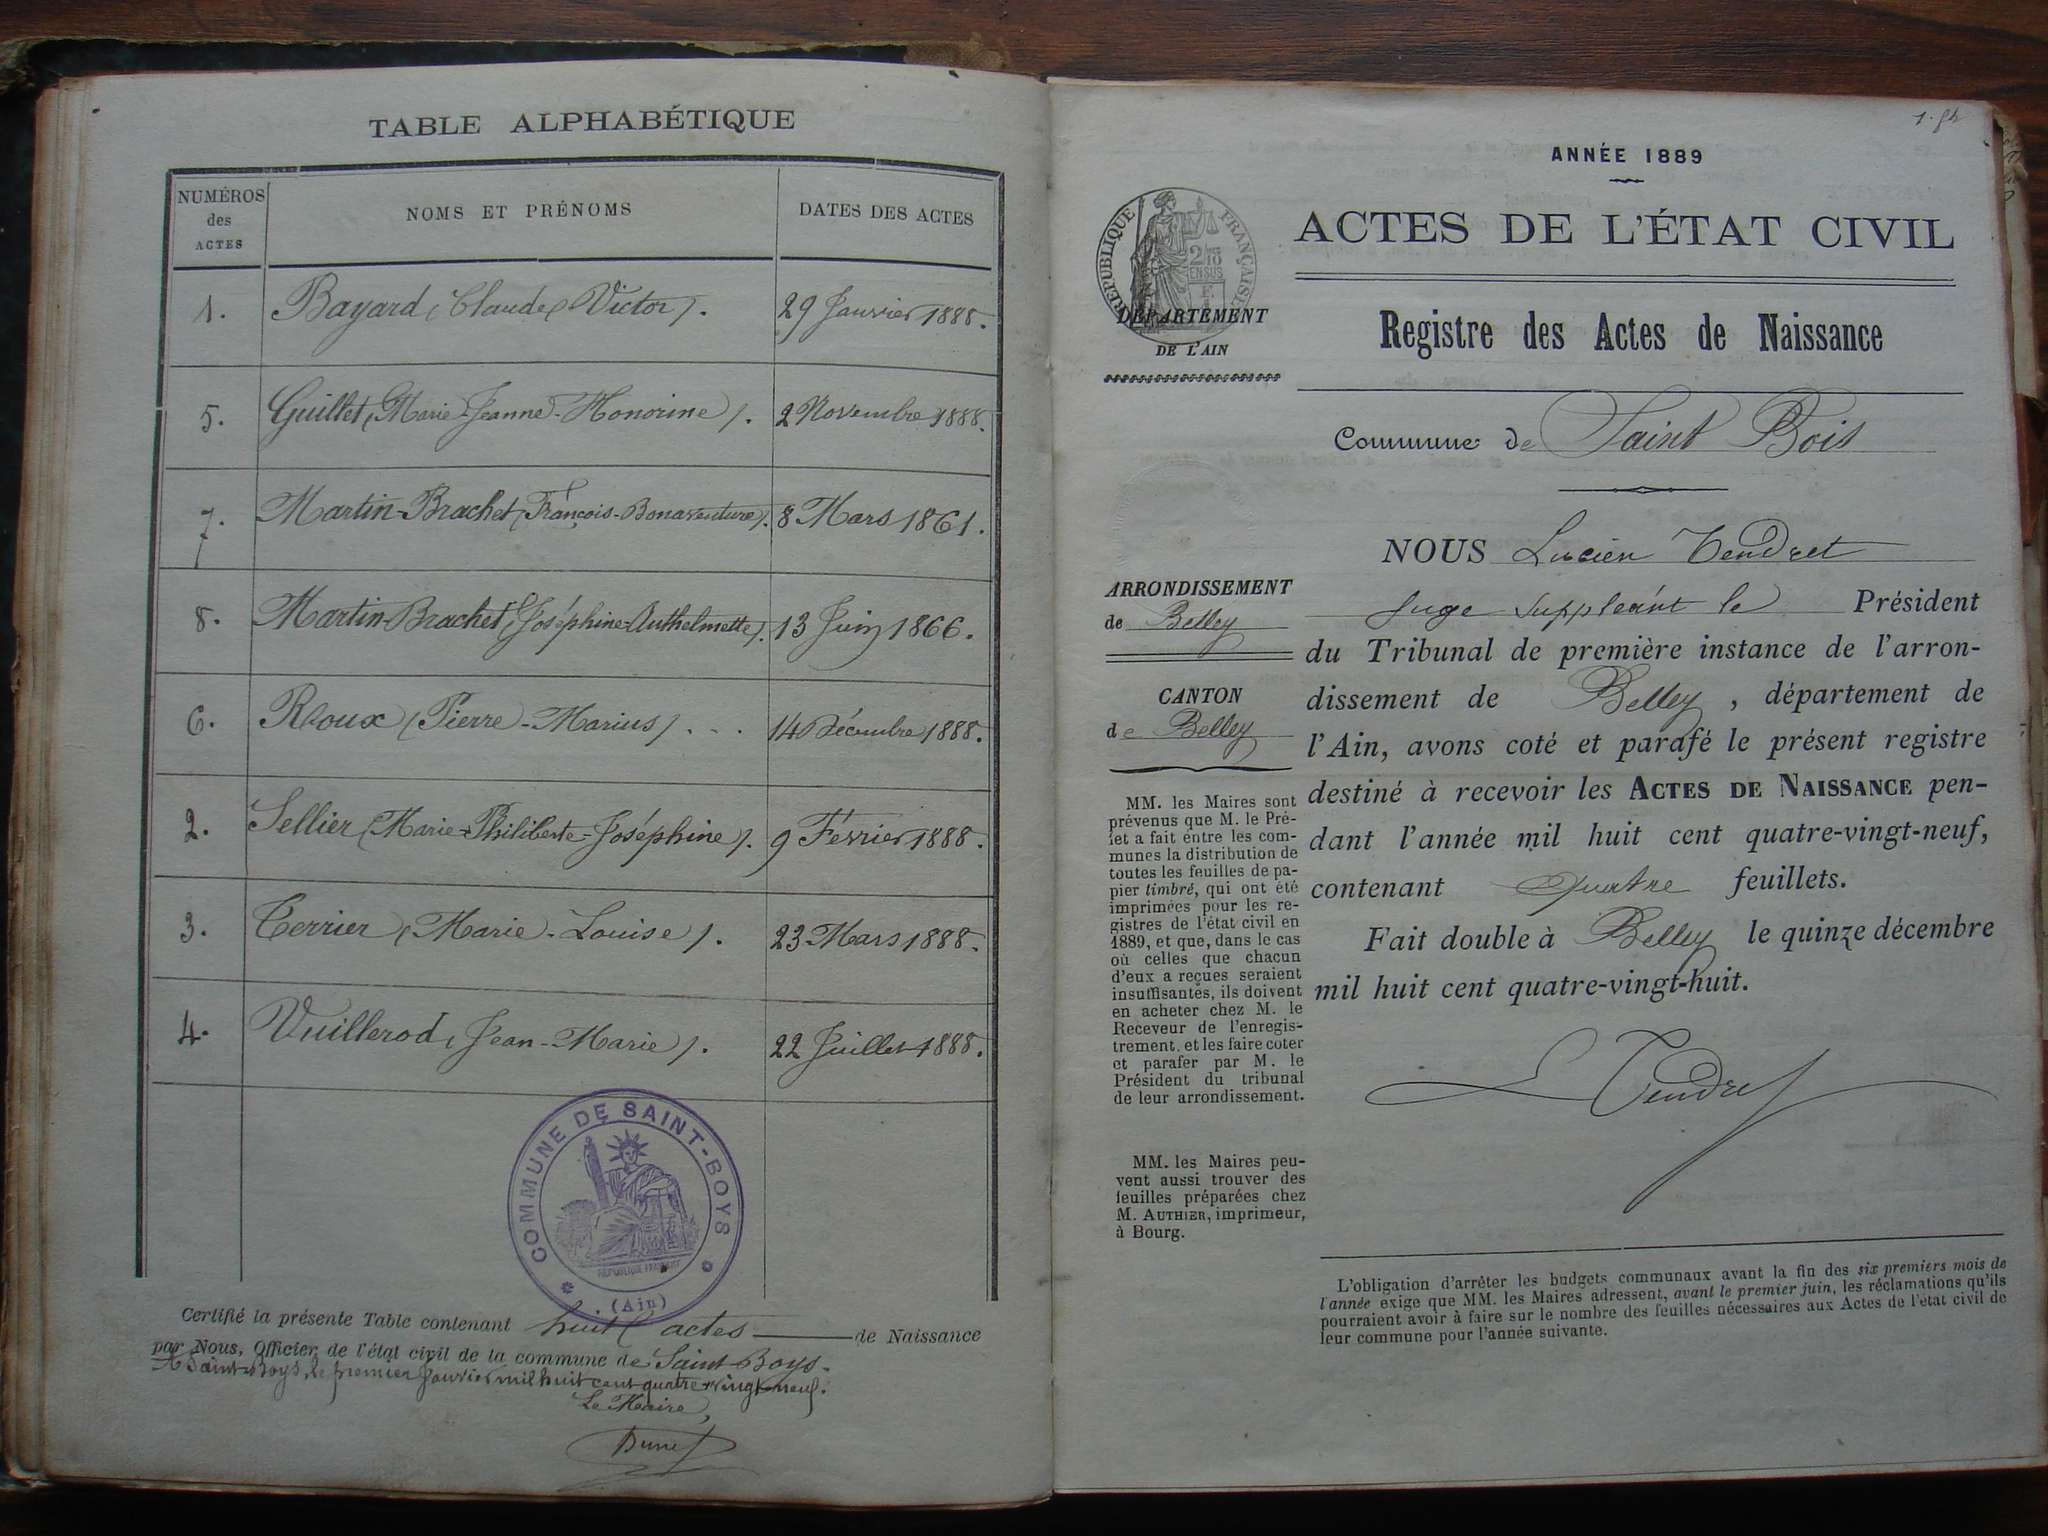 TABLE ALPHABÉTIQUE
NUMÉROS
des
ACTES
NOMS ET PRÉNOMS
DATES DES ACTES
1. Bayard (Claude Victor). 29 Janvier 1888.
5. Guillet (Marie-Jeanne-Honorine). 2 Novembre 1888.
7. Martin-Brachet (François-Bonaventure). 8 Mars 1861.
8. Martin-Brachet (Joséphine-Anthelmette). 13 Juin 1866.
6. Roux (Pierre-Marius). . . 14 Décembre 1888.
2. Sellier (Marie-Philiberte-Joséphine). 9 Février 1888.
3. Terrier (Marie-Louise). 23 Mars 1888.
4. Vuillerod (Jean-Marie). 22 Juillet 1888.
COMMUNE DE SAINT-BOYS
RÉPUBLIQUE FRANÇAISE
(Ain)
Certifié la présente Table contenant huit actes de Naissance
par Nous, Officier de l'état civil de la commune de Saint-Boys.
A Saint-Boys, le premier Janvier mil huit cent quatre-vingt-neuf.
Le Maire,
ANNÉE 1889
ACTES DE L'ÉTAT CIVIL
RÉPUBLIQUE FRANÇAISE
2/10
EN SUS
DÉPARTEMENT
DE L'AIN
Registre des Actes de Naissance
Commune de Saint Bois
NOUS Lucien Tendret
Juge Suppléant le Président
du Tribunal de première instance de l'arron-
dissement de Belley, département de
l'Ain, avons coté et parafé le présent registre
destiné à recevoir les ACTES DE NAISSANCE pen-
dant l'année mil huit cent quatre-vingt-neuf,
contenant quatre feuillets.
Fait double à Belley le quinze décembre
mil huit cent quatre-vingt-huit.
L Tendret
ARRONDISSEMENT
de Belley
CANTON
de Belley
MM. les Maires sont
prévenus que M. le Pré-
fet a fait entre les com-
munes la distribution de
toutes les feuilles de pa-
pier timbré, qui ont été
imprimées pour les re-
gistres de l'état civil en
1889, et que, dans le cas
où celles que chacun
d'eux a reçues seraient
insuffisantes, ils doivent
en acheter chez M. le
Receveur de l'enregis-
trement, et les faire coter
et parafer par M. le
Président du tribunal
de leur arrondissement.
MM. les Maires peu-
vent aussi trouver des
feuilles préparées chez
M. AUTHIER, imprimeur,
à Bourg.
L'obligation d'arrêter les budgets communaux avant la fin des six premiers mois de
l'année exige que MM. les Maires adressent, avant le premier juin, les réclamations qu'ils
pourraient avoir à faire sur le nombre des feuilles nécessaires aux Actes de l'état civil de
leur commune pour l'année suivante.